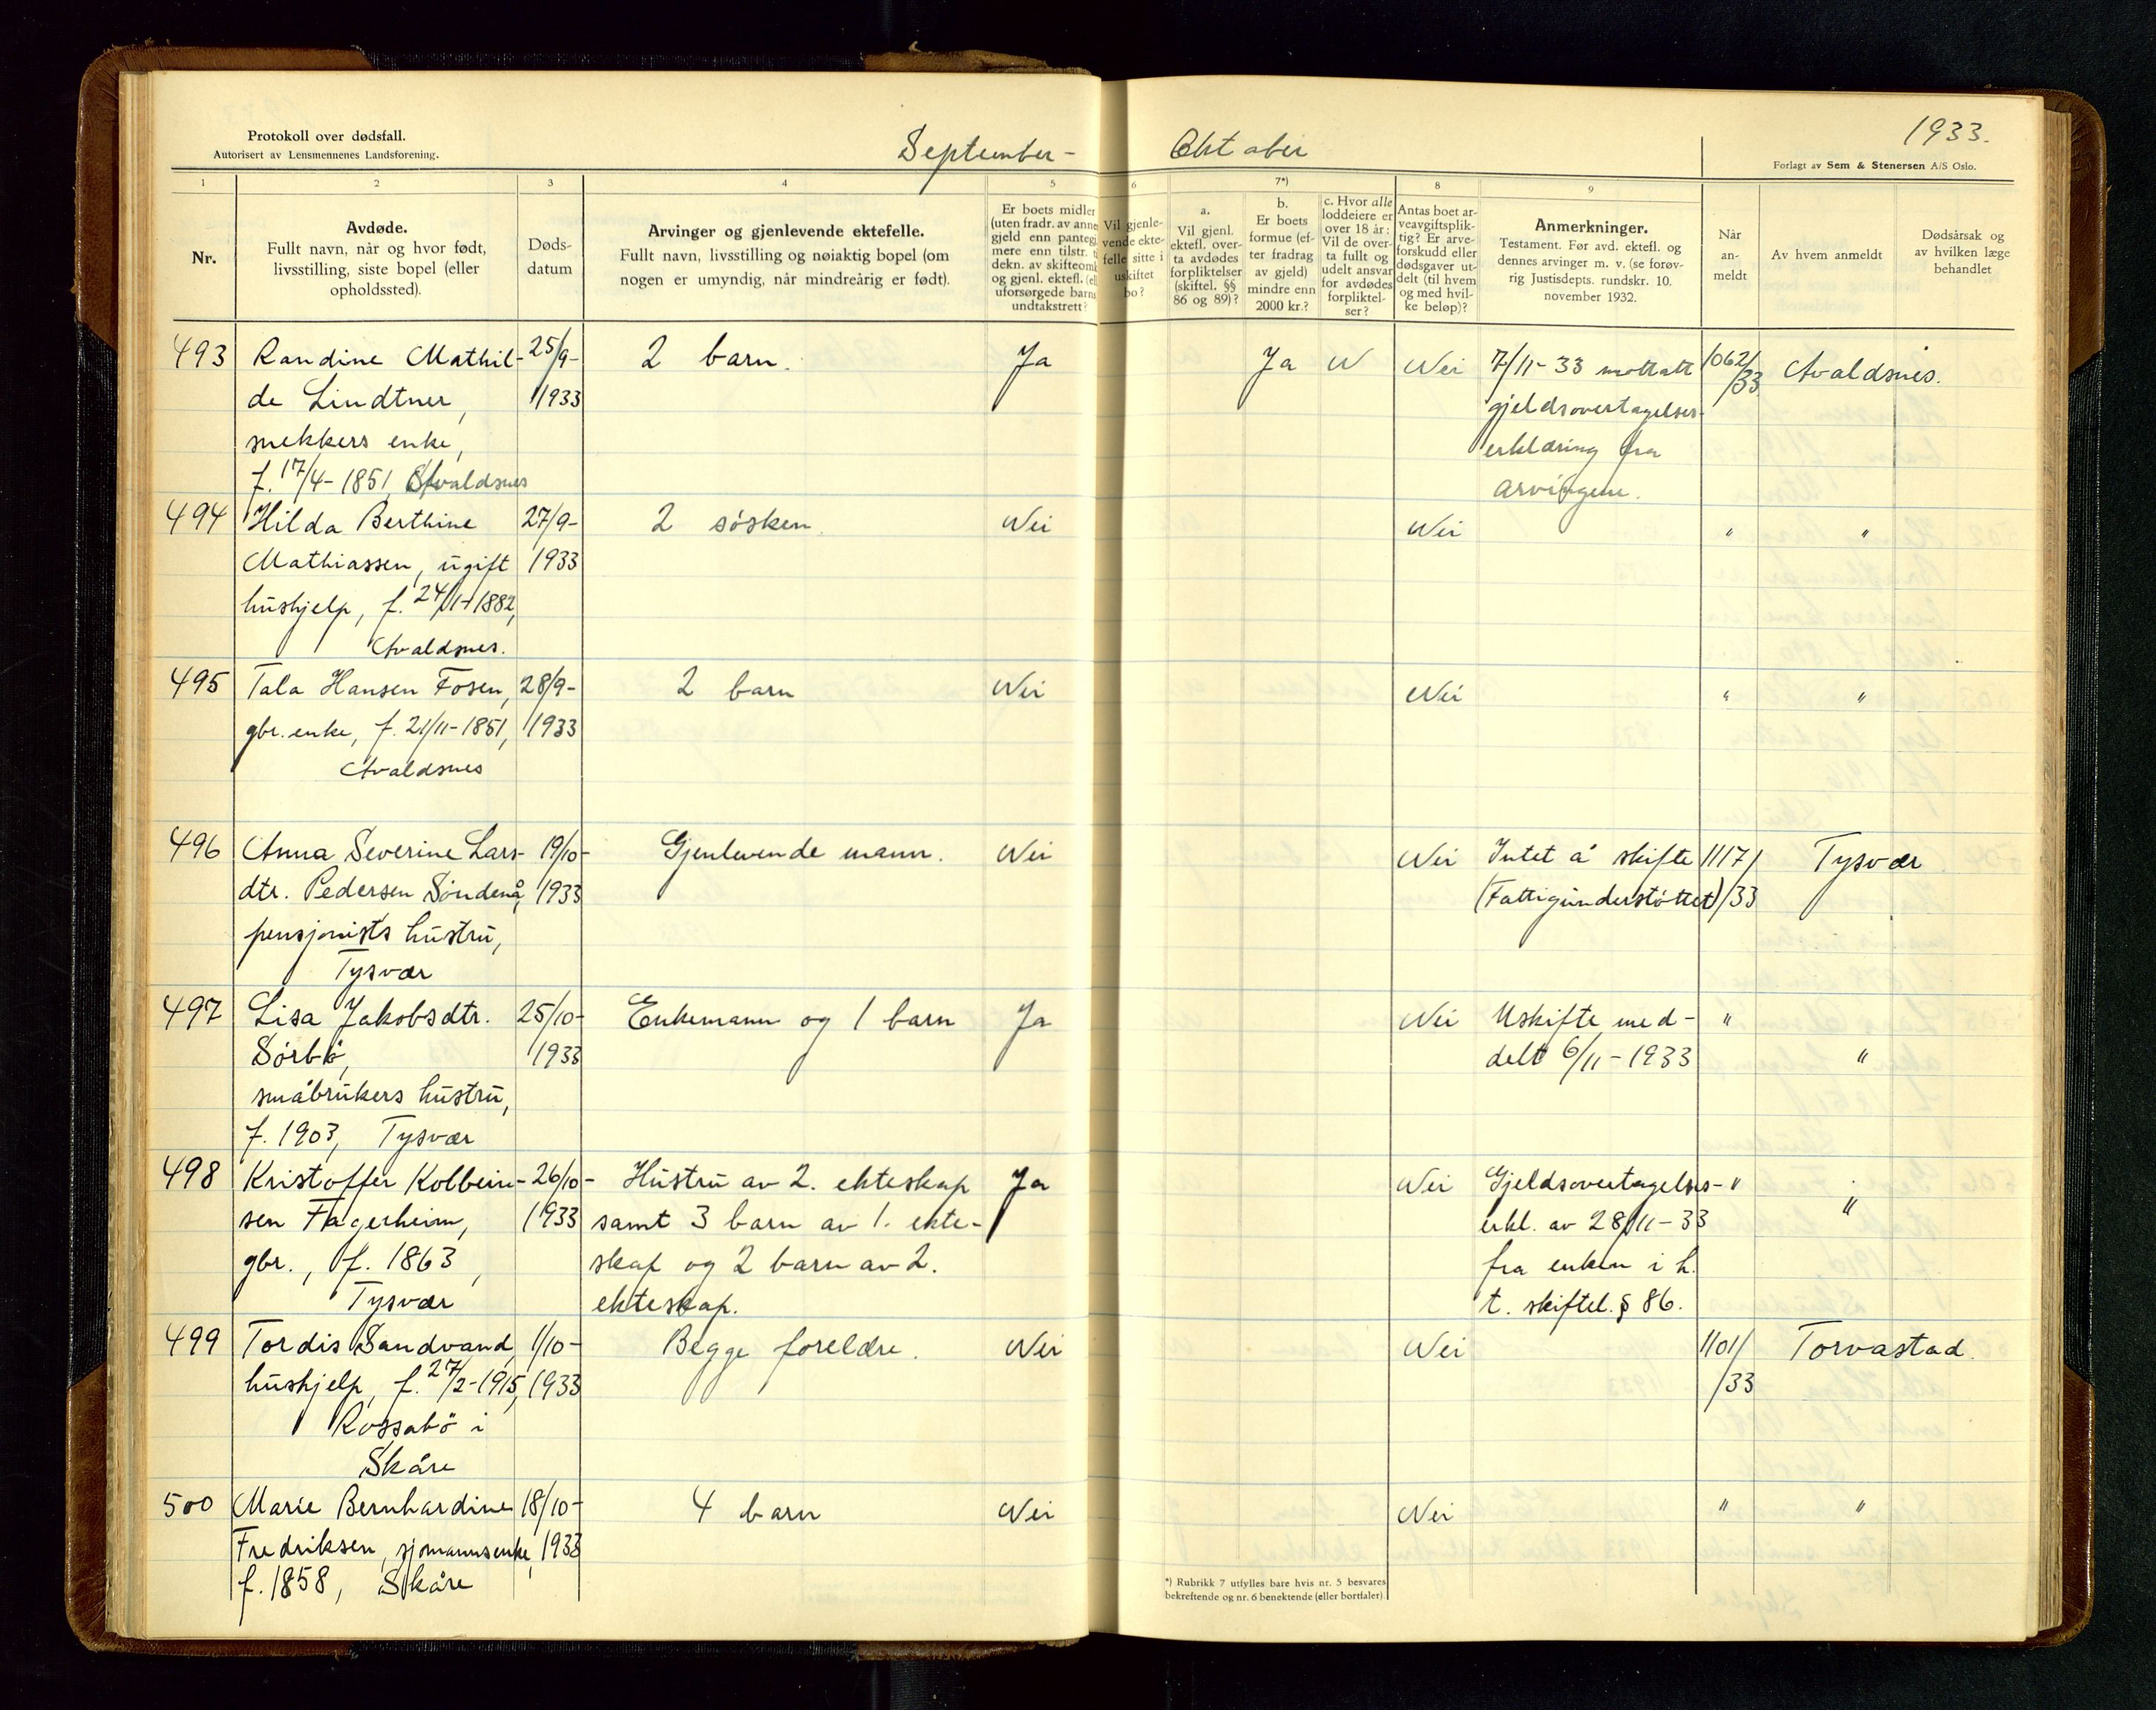 Protokoll over dødsfall.
Autorisert av Lensmennenes Landsforening.
September - Oktober
1933.
Forlagt av Sem & Stenersen A/S Oslo.
1 2 3 4 5 6 7*) 8 9
Nr.
Avdøde.
Fullt navn, når og hvor født,
livsstilling, siste bopel (eller
opholdssted).
Døds-
datum
Arvinger og gjenlevende ektefelle.
Fullt navn, livsstilling og nøiaktig bopel (om
nogen er umyndig, når mindreårig er født).
Er boets midler
(uten fradr. av anne
gjeld enn pantegj
mere enn tilstr. t
dekn. av skifteomk
og gjenl. ektefl. (el
uforsørgede barns
undtakstrett?
Vil gjenle-
vende ekte-
felle sitte i
uskiftet
bo?
a.
Vil gjenl.
ektefl. over-
ta avdødes
forpliktelser
(skiftel. §§
86 og 89)?
b.
Er boets
formue (ef-
ter fradrag
av gjeld)
mindre enn
2000 kr.?
c. Hvor alle
loddeiere er
over 18 år:
Vil de over-
ta fullt og
udelt ansvar
for avdødes
forpliktel-
ser?
Antas boet ar-
veavgiftsplik-
tig? Er arve-
forskudd eller
dødsgaver ut-
delt (til hvem
og med hvil-
ke beløp)?
Anmerkninger.
Testament. Før avd. ektefl. og
dennes arvinger m. v. (se forøv-
rig Justisdepts. rundskr. 10.
november 1932.
Når
an-
meldt
Av hvem anmeldt
Dødsårsak og
av hvilken læge
behandlet
493 Randine Mathil- 25/9- 2 barn. Ja Ja N Nei 7/11-33 mottatt 1062/ Avaldsnes.
de Lindtner, 1933 gjeldsovertagelses- /33
snekkers enke, erklæring fra
f. 17/4-1851, Avaldsnes arvingene.
494 Hilda Berthine 27/9- 2 søsken. Nei Nei " "
Mathiassen, ugift 1933
hushjelp, f. 24/1-1882,
Avaldsnes.
495 Tala Hansen Fosen, 28/9- 2 barn Nei Nei " "
gbr. enke, f. 21/11-1851, 1933
Avaldsnes
496 Anna Severine Lars- 19/10- Gjenlevende mann. Nei Nei Intet å skifte 1117/ Tysvær
dtr. Pedersen Søndenå, 1933 (Fattigunderstøttet) /33
pensjonists hustru,
Tysvær
497 Lisa Jakobsdtr. 25/10- Enkemann og 1 barn Ja Nei Uskifte med- "
Sørbø, 1933 delt 6/11-1933 "
småbrukers hustru,
f. 1903, Tysvær
498 Kristoffer Kolbein- 26/10- Hustru av 2. ekteskap Ja Nei Gjeldsovertagelses- " "
sen Fagerheim, 1933 samt 3 barn av 1. ekte- erkl. av 28/11-33
gbr., f. 1863, skap og 2 barn av 2. fra enken i h.
Tysvær ekteskap. t. skiftel. § 86.
499 Tordis Sandvand, 1/10- Begge foreldre. Nei Nei 1101/ Torvastad.
hushjelp, f. 27/2-1915, 1933 /33
Rossabø i
Skåre
500 Marie Bernhardine 18/10- 4 barn Nei Nei " "
Fredriksen, sjømannsenke, 1933
f. 1858, Skåre
*) Rubrikk 7 utfylles bare hvis nr. 5 besvares
bekreftende og nr. 6 benektende (eller bortfaler).